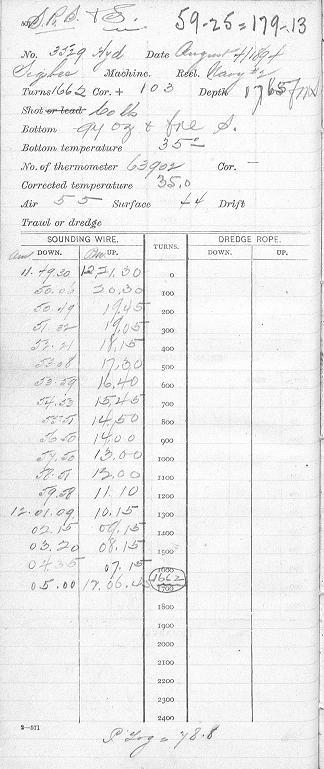 59-25=179-13
No. 3529 Hyd Date August 4/1894
Sigsbee Machine. Reel. Navy #2
Turns 1662 Cor. + 103 Depth 1765 fms
Shot or lead 60 lb
Bottom gy oz & fne S.
Bottom temperature 35°
No. of thermometer 63902 Cor. —
Corrected temperature 35.0
Air 55 Surface 44 Drift
Trawl or dredge
SOUNDING WIRE. TURNS. DREDGE ROPE.
am DOWN. pm UP. DOWN. UP.
11.49.30 12 21.30 0
50.06 20.30 100
50.49 19.45 200
51.32 19.05 300
52.21 18.15 400
53.08 17.30 500
53.59 16.40 600
54.53 15.45 700
55.51 14.50 800
56.50 14.00 900
57.50 13.00 1000
58.51 12.00 1100
59.58 11.10 1200
12.01.09 10.15 1300
02.15 09.15 1400
03.20 08.15 1500
04.35 07.15 1600
05.00 12.06.25 1662 1700
1800
1900
2000
2100
2200
2300
2400
2—571
P. Log = 78.8